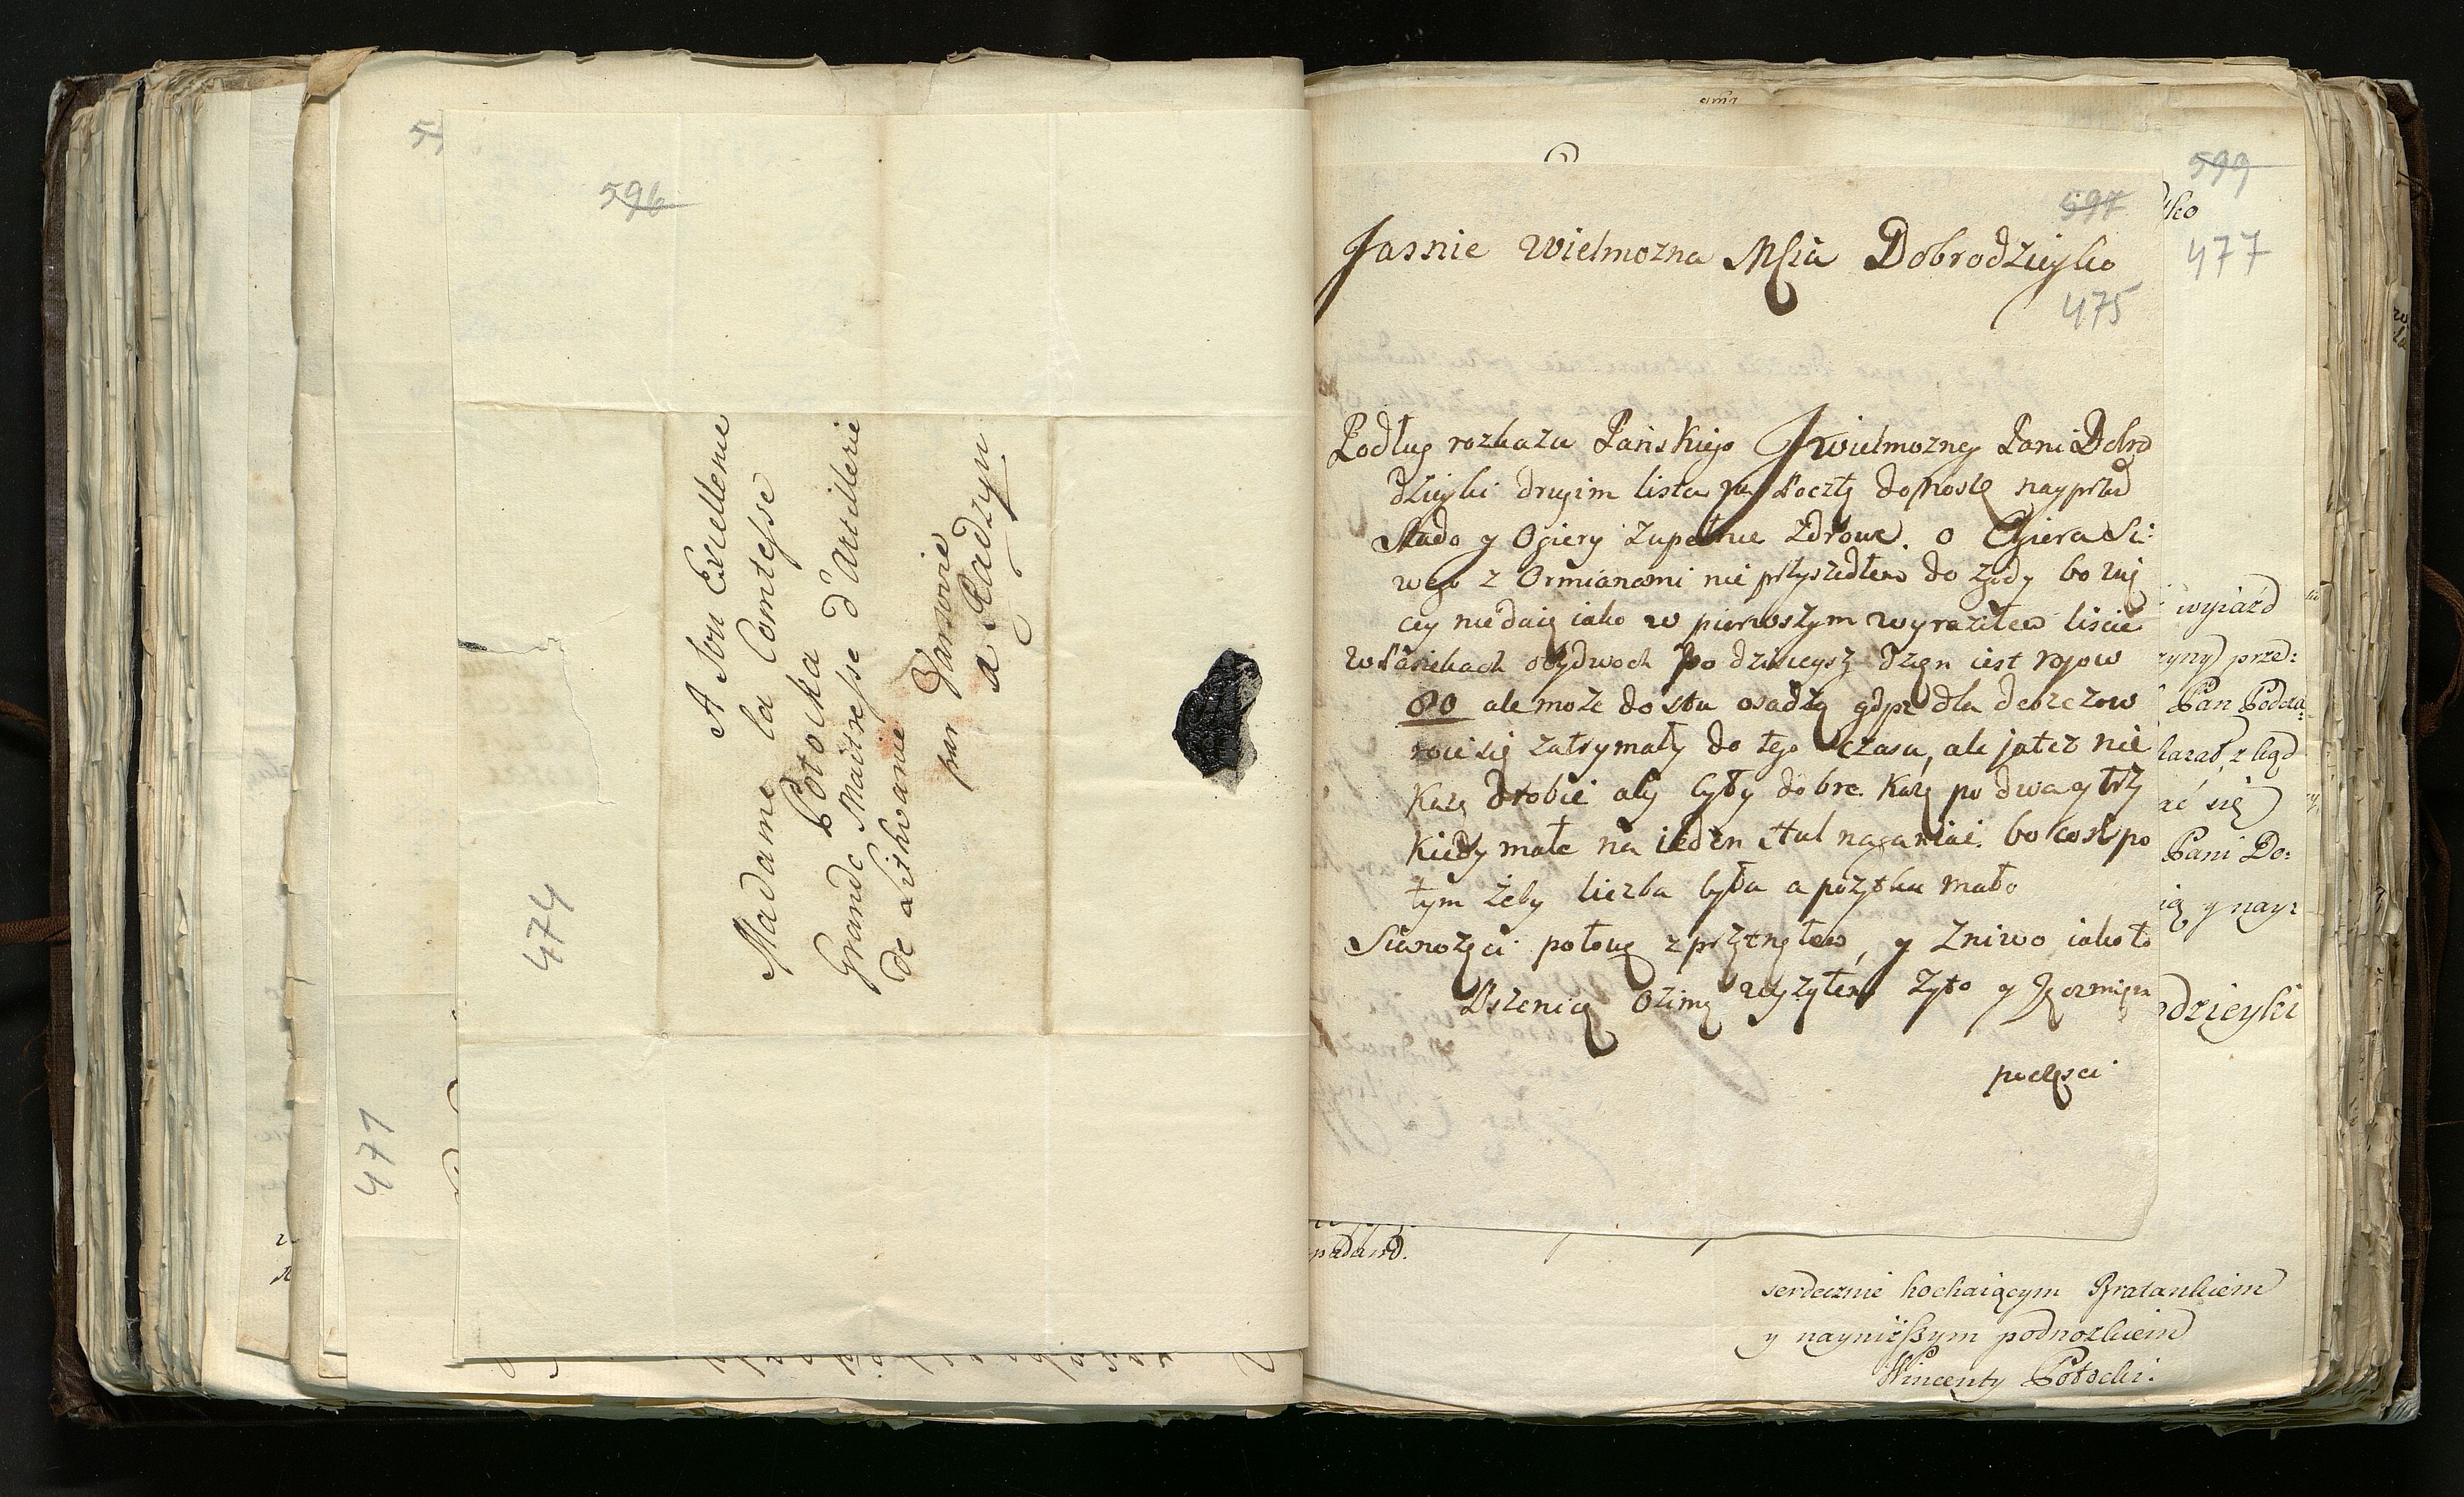 596
474
471
A Son Excellence
Madame la Comtesse
Potocka
Grande Maitresse d'Artillerie
de Lithvanie
par Varsovie
a Radzyn
597
599
477
Jasnie Wielmozna Mscia Dobrodzieyko
475
Podług rozkazu Pańskiego JWielmozney Pani Dobro
dzieyki drugim listem Pocztą donoszę nayprzod
Stado y Ogiery zupełnie zdrowe. o Ogiera Si:
wego z Ormianami nie przyszedłem do zgody bo
cey niedaią iako w pierwszym wyraziłem liscie
w Pasiekach obydwoch po dzisieyszy dzęn iest rojow
80 ale może do stu osadzą gdysz dla deszczow
roie się zatrzymały do tego czasu, ale ja też nie
Każę drobić aby były dobre. Każę po dwa y trzy
Kiedy małe na ieden Ul naganiać. bo cosz po
tym żeby liczba była a pożytku mało
Sianożęci połowę zprzątnąłem, y Zniwo iako to
Pszenicę Ozimą zżyłem Zyto y Jęczmien
poczęsci
wyiazd
prze:
Pan Podcza:
ać się
Pani Do:
y nay:
odzieyki
padam.
serdecznie kochaiącym Bratankiem
y nayniższym podnozkiem
Wincenty Potocki.